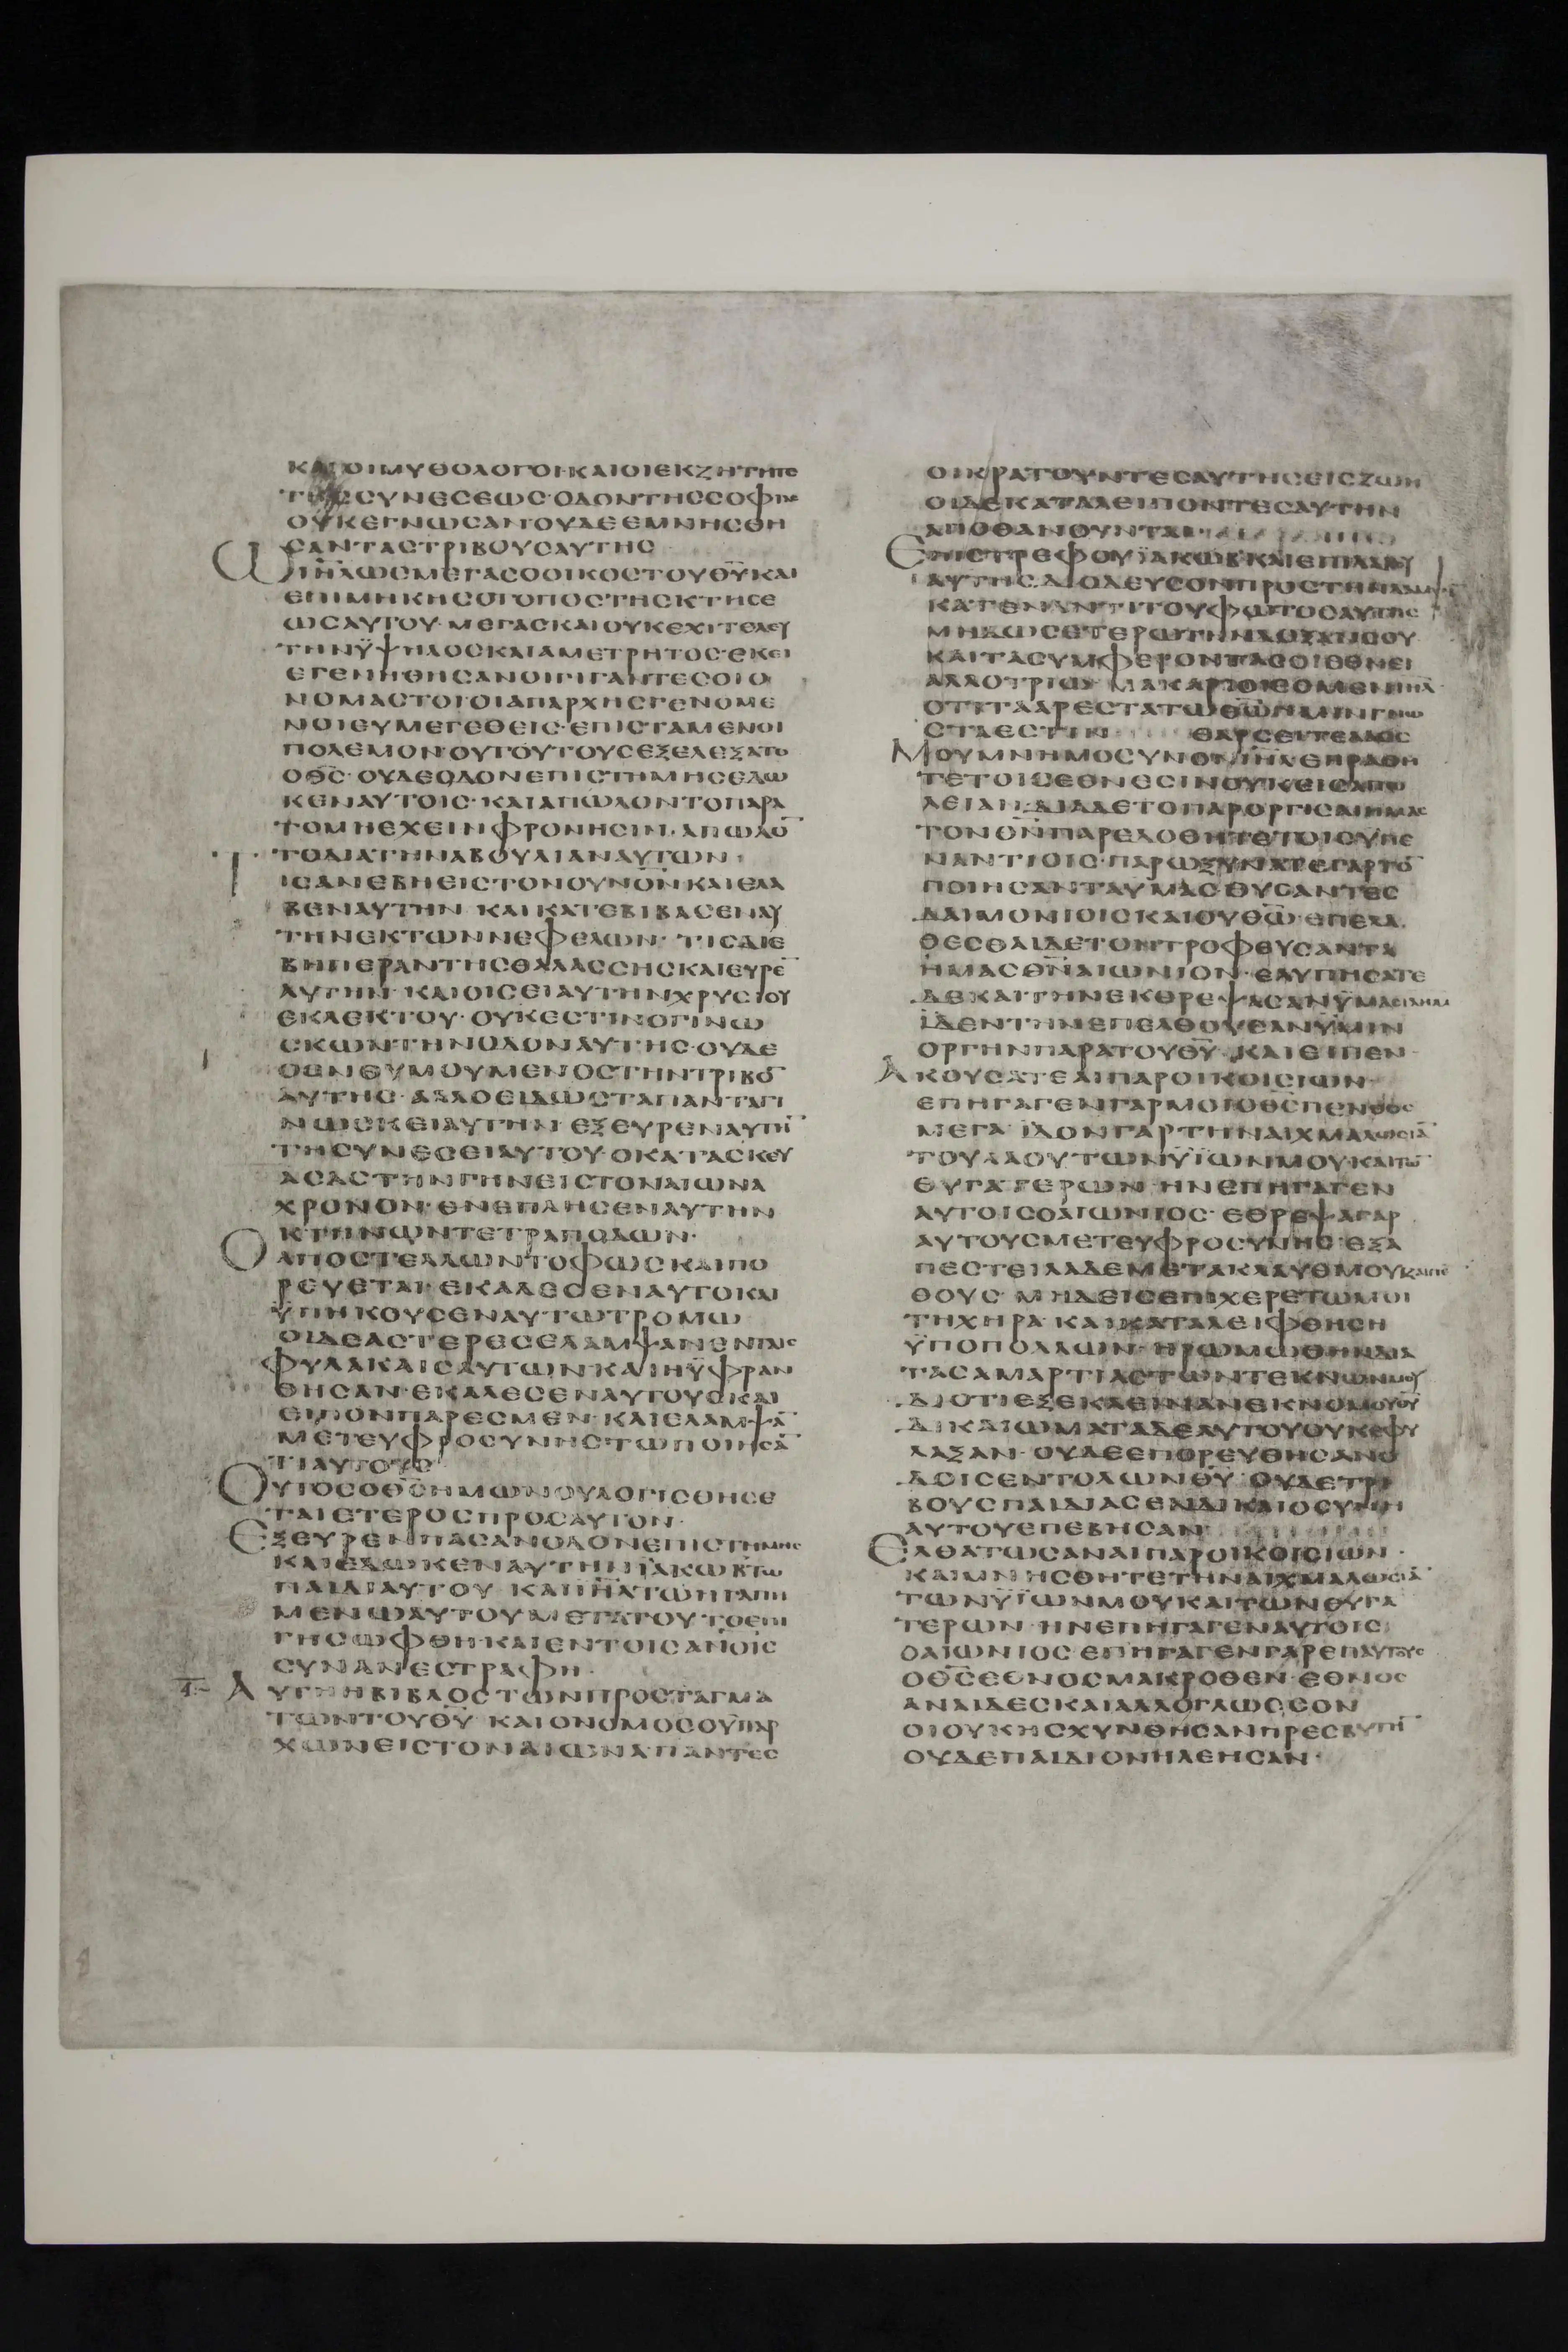 ΚΑΙΟΙΜΥΘΟΛΟΓΟΙΚΑΙΟΙΕΚΖΗΤΗΤΕ
ΤΗϹϹΥΝΕϹΕΩϹ·ΟΔΟΝΤΗϹϹΟΦΙΑϹ
ΟΥΚΕΓΝΩϹΑΝΟΥΔΕΕΜΝΗϹΘΗ
ϹΑΝΤΑϹΤΡΙΒΟΥϹΑΥΤΗϹ
ΩΙΗ̅Λ̅ΩϹΜΕΓΑϹΟΟΙΚΟϹΤΟΥΘ̅Υ̅ΚΑΙ
ΕΠΙΜΗΚΗϹΟΤΟΠΟϹΤΗϹΚΤΗϹΕ
ΩϹΑΥΤΟΥ·ΜΕΓΑϹΚΑΙΟΥΚΕΧΙΤΕΛΕΥ
ΤΗΝΫΨΗΛΟϹΚΑΙΑΜΕΤΡΗΤΟϹ·ΕΚΕΙ
ΕΓΕΝΗΘΗϹΑΝΟΙΓΙΓΑΝΤΕϹΟΙΟ
ΝΟΜΑϹΤΟΙΟΙΑΠΑΡΧΗϹΓΕΝΟΜΕ
ΝΟΙΕΥΜΕΓΕΘΕΙϹ·ΕΠΙϹΤΑΜΕΝΟΙ
ΠΟΛΕΜΟΝ·ΟΥΤΟΥΤΟΥϹΕΞΕΛΕΞΑΤΟ
ΟΘ̅Ϲ̅·ΟΥΔΕΟΔΟΝΕΠΙϹΤΗΜΗϹΕΔΩ
ΚΕΝΑΥΤΟΙϹ·ΚΑΙΑΠΩΛΟΝΤΟΠΑΡΑ
ΤΟΜΗΕΧΕΙΝΦΡΟΝΗϹΙΝ·ΑΠΩΛΟ̅
ΤΟΔΙΑΤΗΝΑΒΟΥΛΙΑΝΑΥΤΩΝ·
ΤΙϹΑΝΕΒΗΕΙϹΤΟΝΟΥΝΟ̅Ν̅ΚΑΙΕΛΑ
ΒΕΝΑΥΤΗΝ ΚΑΙΚΑΤΕΒΙΒΑϹΕΝΑΥ
ΤΗΝΕΚΤΩΝΝΕΦΕΛΩΝ· ΤΙϹΔΙΕ
ΒΗΠΕΡΑΝΤΗϹΘΑΛΑϹϹΗϹΚΑΙΕΥΡΕ̅
ΑΥΤΗΝ·ΚΑΙΟΙϹΕΙΑΥΤΗΝΧΡΥϹΙΟΥ
ΕΚΛΕΚΤΟΥ·ΟΥΚΕϹΤΙΝΟΓΙΝΩ
ϹΚΩΝΤΗΝΟΔΟΝΑΥΤΗϹ·ΟΥΔΕ
ΟΕΝΘΥΜΟΥΜΕΝΟϹΤΗΝΤΡΙΒΟ̅
ΑΥΤΗϹ·ΑΛΛΟΕΙΔΩϹΤΑΠΑΝΤΑΓΙ
ΝΩϹΚΕΙΑΥΤΗΝ·ΕΞΕΥΡΕΝΑΥΤΗ̅
ΤΗϹΥΝΕϹΕΙΑΥΤΟΥ·ΟΚΑΤΑϹΚΕΥ
ΑϹΑϹΤΗΝΓΗΝΕΙϹΤΟΝΑΙΩΝΑ
ΧΡΟΝΟΝ·ΕΝΕΠΛΗϹΕΝΑΥΤΗΝ
ΚΤΗΝΩΝΤΕΤΡΑΠΟΔΩΝ·
ΟΑΠΟϹΤΕΛΛΩΝΤΟΦΩϹΚΑΙΠΟ
ΡΕΥΕΤΑΙ·ΕΚΑΛΕϹΕΝΑΥΤΟΚΑΙ
ΫΠΗΚΟΥϹΕΝΑΥΤΩΤΡΟΜΩ
ΟΙΔΕΑϹΤΕΡΕϹΕΛΑΜΨΑΝΕΝΤΑΙϹ
ΦΥΛΑΚΑΙϹΑΥΤΩΝΚΑΙΗΫΦΡΑΝ
ΘΗϹΑΝ·ΕΚΑΛΕϹΕΝΑΥΤΟΥϹΚΑΙ
ΕΙΠΟΝΠΑΡΕϹΜΕΝ·ΚΑΙΕΛΑΜΨΑ̅
ΜΕΤΕΥΦΡΟϹΥΝΗϹΤΩΠΟΙΗϹΑ̅
ΤΙΑΥΤΟΥϹ
ΟΥΤΟϹΟΘ̅Ϲ̅ΗΜΩΝΟΥΛΟΓΙϹΘΗϹΕ
ΤΑΙΕΤΕΡΟϹΠΡΟϹΑΥΤΟΝ·
ΕΞΕΥΡΕΝΠΑϹΑΝΟΔΟΝΕΠΙϹΤΗΜΗϹ
ΚΑΙΕΔΩΚΕΝΑΥΤΗΝΪΑΚΩΒΤΩ
ΠΑΙΔΙΑΥΤΟΥ ΚΑΙΙΗ̅Λ̅ΤΩΗΓΑΠΗ
ΜΕΝΩΑΥΤΟΥΜΕΤΑΤΟΥΤΟΕΠΙ
ΓΗϹΩΦΘΗ·ΚΑΙΕΝΤΟΙϹΑΝ̅Ο̅Ι̅Ϲ̅
ϹΥΝΑΝΕϹΤΡΑΦΗ·
ΑΥΤΗΗΒΙΒΛΟϹΤΩΝΠΡΟϹΤΑΓΜΑ
ΤΩΝΤΟΥΘ̅Υ̅ ΚΑΙΟΝΟΜΟϹΟΫΠΑΡ
ΧΩΝΕΙϹΤΟΝΑΙΩΝΑΠΑΝΤΕϹ
ΟΙΚΡΑΤΟΥΝΤΕϹΑΥΤΗϹΕΙϹΖΩΗΝ
ΟΙΔΕΚΑΤΑΛΕΙΠΟΝΤΕϹΑΥΤΗΝ
ΑΠΟΘΑΝΟΥΝΤΑΙ·
ΕΠΙϹΤΡΕΦΟΥΪΑΚΩΒΚΑΙΕΠΙΛΑΒΟΥ
ΑΥΤΗϹ·ΔΙΟΔΕΥϹΟΝΠΡΟϹΤΗΝ
ΚΑΤΕΝΑΝΤΙΤΟΥΦΩΤΟϹΑΥΤΗϹ
ΜΗΔΩϹΕΤΕΡΩΤΗΝΔΟΞΑΝϹΟΥ
ΚΑΙΤΑϹΥΜΦΕΡΟΝΤΑϹΟΙΕΘΝΕΙ
ΑΛΛΟΤΡΙΩ·ΜΑΚΑΡΙΟΙΕϹΜΕΝΙΗ̅Λ̅
ΟΤΙΤΑΑΡΕϹΤΑΤΩΘ̅Ω̅ΗΜΙΝΓΝΩ
ϹΤΑΕϹΤΙΝ ΘΑΡϹΕΙΤΕΛΑΟϹ
ΜΟΥΜΝΗΜΟϹΥΝΟΝΙΗ̅Λ̅ΕΠΡΑΘΗ
ΤΕΤΟΙϹΕΘΝΕϹΙΝΟΥΚΕΙϹΑΠΩ
ΛΕΙΑΝ·ΔΙΑΔΕΤΟΠΑΡΟΡΓΙϹΑΙΗΜΑϹ
ΤΟΝΘ̅Ν̅ΠΑΡΕΔΟΘΗΤΕΤΟΙϹΥΠΕ
ΝΑΝΤΙΟΙϹ·ΠΑΡΩΞΥΝΑΤΕΓΑΡΤΟ̅
ΠΟΙΗϹΑΝΤΑΥΜΑϹΘΥϹΑΝΤΕϹ
ΔΑΙΜΟΝΙΟΙϹΚΑΙΟΥΘ̅Ω̅·ΕΠΕΛΑ
ΘΕϹΘΑΙΔΕΤΟΝΤΡΟΦΕΥϹΑΝΤΑ
ΗΜΑϹΘ̅Ν̅ΑΙΩΝΙΟΝ·ΕΛΥΠΗϹΑΤΕ
ΔΕΚΑΙΤΗΝΕΚΘΡΕΨΑϹΑΝΫΜΑϹΙΛΗΜ
ΪΔΕΝΤΗΝΕΠΕΛΘΟΥϹΑΝΫΜΙΝ
ΟΡΓΗΝΠΑΡΑΤΟΥΘ̅Υ̅·ΚΑΙΕΙΠΕΝ·
ΑΚΟΥϹΑΤΕΑΙΠΑΡΟΙΚΟΙϹΙΩΝ·
ΕΠΗΓΑΓΕΝΓΑΡΜΟΙΟΘ̅Ϲ̅ΠΕΝΘΟϹ
ΜΕΓΑ·ΪΔΟΝΓΑΡΤΗΝΑΙΧΜΑΛΩϹΙΑ̅
ΤΟΥΛΑΟΥΤΩΝΫΪΩΝΜΟΥ·ΚΑΙΤΩ̅
ΘΥΓΑΤΕΡΩΝ·ΗΝΕΠΗΓΑΓΕΝ
ΑΥΤΟΙϹΟΑΙΩΝΙΟϹ·ΕΘΡΕΨΑΓΑΡ
ΑΥΤΟΥϹΜΕΤΕΥΦΡΟϹΥΝΗϹ·ΕΞΑ
ΠΕϹΤΕΙΛΑΔΕΜΕΤΑΚΛΑΥΘΜΟΥΚΑΙΠΕ̅
ΘΟΥϹ·ΜΗΔΕΙϹΕΠΙΧΕΡΕΤΩΜΟΙ
ΤΗΧΗΡΑ·ΚΑΙΚΑΤΑΛΕΙΦΘΗϹΗ
ΫΠΟΠΟΛΛΩΝ·ΗΡΩΜΩΘΗΝΔΙΑ
ΤΑϹΑΜΑΡΤΙΑϹΤΩΝΤΕΚΝΩΝΜΟΥ
ΔΙΟΤΙΕΞΕΚΛΕΙΝΑΝΕΚΝΟΜΟΥΘ̅Υ̅
ΔΙΚΑΙΩΜΑΤΑΔΕΑΥΤΟΥΟΥΚΕΦΥ
ΛΑΞΑΝ·ΟΥΔΕΕΠΟΡΕΥΘΗϹΑΝΟ
ΔΟΙϹΕΝΤΟΛΩΝΘ̅Υ̅·ΟΥΔΕΤΡΙ
ΒΟΥϹΠΑΙΔΙΑϹΕΝΔΙΚΑΙΟϹΥΝΗ
ΑΥΤΟΥΕΠΕΒΗϹΑΝ
ΕΛΘΑΤΩϹΑΝΑΙΠΑΡΟΙΚΟΙϹΙΩΝ·
ΚΑΙΜΝΗϹΘΗΤΕΤΗΝΑΙΧΜΑΛΩϹΙΑ̅
ΤΩΝΫΪΩΝΜΟΥΚΑΙΤΩΝΘΥΓΑ
ΤΕΡΩΝ·ΗΝΕΠΗΓΑΓΕΝΑΥΤΟΙϹ
ΟΑΙΩΝΙΟϹ·ΕΠΗΓΑΓΕΝΓΑΡΕΠΑΥΤΟΥϹ
ΟΘ̅Ϲ̅ΕΘΝΟϹΜΑΚΡΟΘΕΝ·ΕΘΝΟϹ
ΑΝΑΙΔΕϹΚΑΙΑΛΛΟΓΛΩϹϹΟΝ
ΟΙΟΥΚΗϹΧΥΝΘΗϹΑΝΠΡΕϹΒΥΤΗ̅
ΟΥΔΕΠΑΙΔΙΟΝΗΛΕΗϹΑΝ·